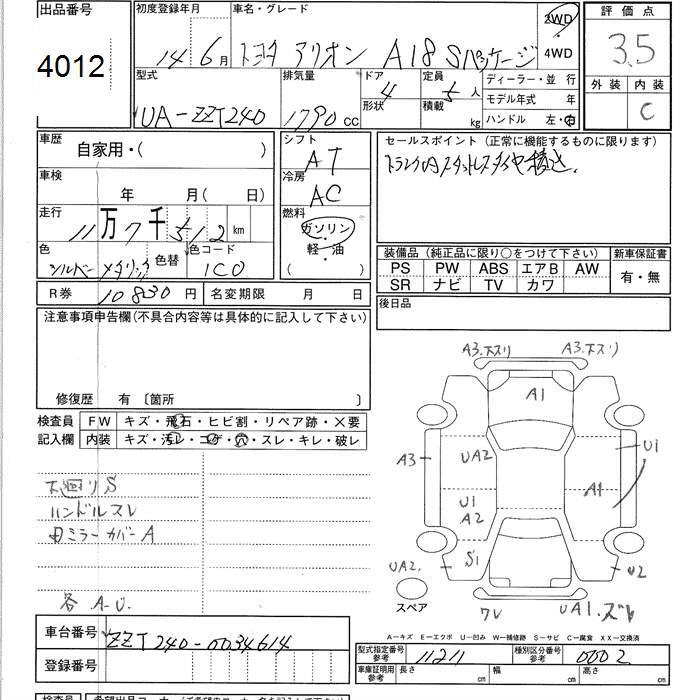 出品番号
4012
初度登録年月
14年6月
車名・グレード
トヨタ アリオン A18 Sパッケージ
2WD
・
4WD
評価点
3.5
外装 内装
C
型式
UA-ZZT240
排気量
1790cc
ドア
4
形状
定員
5人
積載
kg
ディーラー・並 行
モデル年式 年
ハンドル 左・右
車歴
自家用・( )
車検
年 月( 日)
走行
11万7千512km
色
シルバーメタリック
色替
色コード
1C0
シフト
AT
冷房
AC
燃料
ガソリン
軽・油
( )
セールスポイント (正常に機能するものに限ります)
トランク内スタットレスタイヤ積込.
装備品 (純正品に限り○をつけて下さい)
新車保証書
PS PW ABS エアB AW
SR ナビ TV カワ
有・無
R券 10830円 名変期限 月 日
後日品
注意事項申告欄(不具合内容等は具体的に記入して下さい)
修復歴 有 〔箇所 〕
検査員
記入欄
FW キズ・飛石・ヒビ割・リペア跡・×要
内装 キズ・汚レ・コゲ・穴・スレ・キレ・破レ
下廻りS
ハンドルスレ
田ミラーカバーA
各 A-U.
A3.下スリ
A3.下スリ
A1
A3
UA2
U1
U1
A2
A1
UA2.
S1
U2
スペア
ワレ
UA1.ズレ
A－キズ E－エクボ U－凹み W－補修跡 S－サビ C－腐食 XX－交換済
車台番号
ZZT240-0034614
登録番号
型式指定番号
参考
11211
種別区分番号
参考
0002
車庫証明用
参考
長さ
cm
幅
cm
高さ
cm